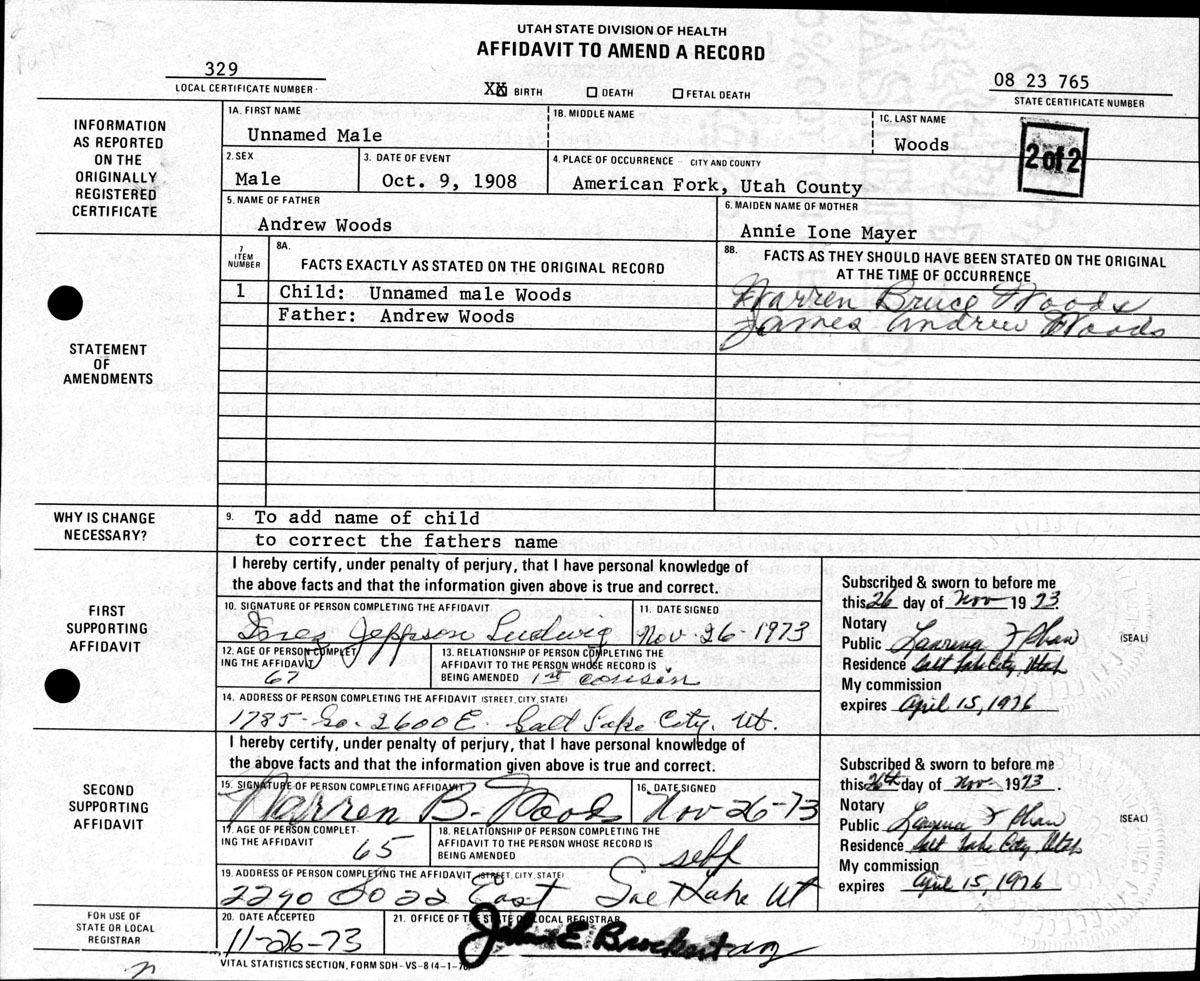 UTAH STATE DIVISION OF HEALTH
AFFIDAVIT TO AMEND A RECORD
329
LOCAL CERTIFICATE NUMBER
XX BIRTH DEATH FETAL DEATH
08 23 765
STATE CERTIFICATE NUMBER
INFORMATION
AS REPORTED
ON THE
ORIGINALLY
REGISTERED
CERTIFICATE
1A. FIRST NAME
Unnamed Male
1B. MIDDLE NAME
1C. LAST NAME
Woods
2 of 2
2. SEX
Male
3. DATE OF EVENT
Oct. 9, 1908
4. PLACE OF OCCURRENCE - CITY AND COUNTY
American Fork, Utah County
5. NAME OF FATHER
Andrew Woods
6. MAIDEN NAME OF MOTHER
Annie Ione Mayer
STATEMENT
OF
AMENDMENTS
7
ITEM
NUMBER
8A.
FACTS EXACTLY AS STATED ON THE ORIGINAL RECORD
8B.
FACTS AS THEY SHOULD HAVE BEEN STATED ON THE ORIGINAL
AT THE TIME OF OCCURRENCE
1 Child: Unnamed male Woods Warren Bruce Woods
Father: Andrew Woods James Andrew Woods
WHY IS CHANGE
NECESSARY?
9. To add name of child
to correct the fathers name
FIRST
SUPPORTING
AFFIDAVIT
I hereby certify, under penalty of perjury, that I have personal knowledge of
the above facts and that the information given above is true and correct.
10. SIGNATURE OF PERSON COMPLETING THE AFFIDAVIT
Jeppson Ludwig
11. DATE SIGNED
Nov-26-1973
12. AGE OF PERSON COMPLET-
ING THE AFFIDAVIT
67
13. RELATIONSHIP OF PERSON COMPLETING THE
AFFIDAVIT TO THE PERSON WHOSE RECORD IS
BEING AMENDED 1st cousin
14. ADDRESS OF PERSON COMPLETING THE AFFIDAVIT (STREET, CITY, STATE)
1785 So. 2600 E. Salt Lake City, Ut.
Subscribed & sworn to before me
this 26 day of Nov 1973.
Notary
Public
(SEAL)
Residence Salt Lake City, Utah
My commission
expires April 15, 1976
SECOND
SUPPORTING
AFFIDAVIT
I hereby certify, under penalty of perjury, that I have personal knowledge of
the above facts and that the information given above is true and correct.
15. SIGNATURE OF PERSON COMPLETING AFFIDAVIT
Warren B. Woods
16. DATE SIGNED
Nov-26-73
17. AGE OF PERSON COMPLET-
ING THE AFFIDAVIT
65
18. RELATIONSHIP OF PERSON COMPLETING THE
AFFIDAVIT TO THE PERSON WHOSE RECORD IS
BEING AMENDED
self
19. ADDRESS OF PERSON COMPLETING THE AFFIDAVIT (STREET, CITY, STATE)
2290 So 22 East Lake Ut
Subscribed & sworn to before me
this 26th day of Nov- 1973.
Notary
Public
(SEAL)
Residence Salt Lake City, Utah
My commission
expires April 15, 1976
FOR USE OF
STATE OR LOCAL
REGISTRAR
20. DATE ACCEPTED
11-26-73
21. OFFICE OF THE STATE OR LOCAL REGISTRAR
John E. Brockert
VITAL STATISTICS SECTION, FORM SDH-VS-8 (4-1-70)